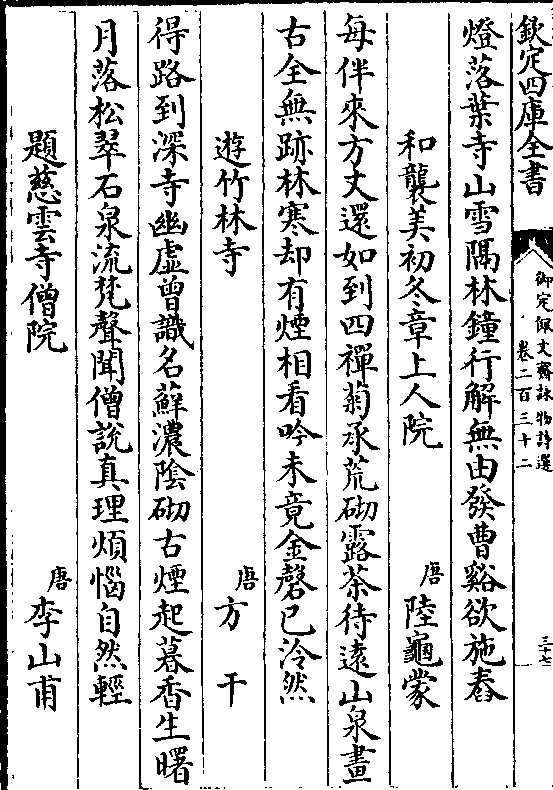 欽定四庫全書
御定佩文齋詠物詩選
卷二百三十二
三十七
燈落葉寺山雪隔林鐘行解無由發曹谿欲施舂
和襲美初冬章上人院
唐 陸龜蒙
每伴來方丈還如到四禪菊承荒砌露茶待遠山泉畫
古全無跡林寒却有煙相看吟未竟金磬已泠然
遊竹林寺
唐 方干
得路到深寺幽虛曾識名蘚濃陰砌古煙起暮香生曙
月落松翠石泉流梵聲聞僧說真理煩惱自然輕
題慈雲寺僧院
唐 李山甫